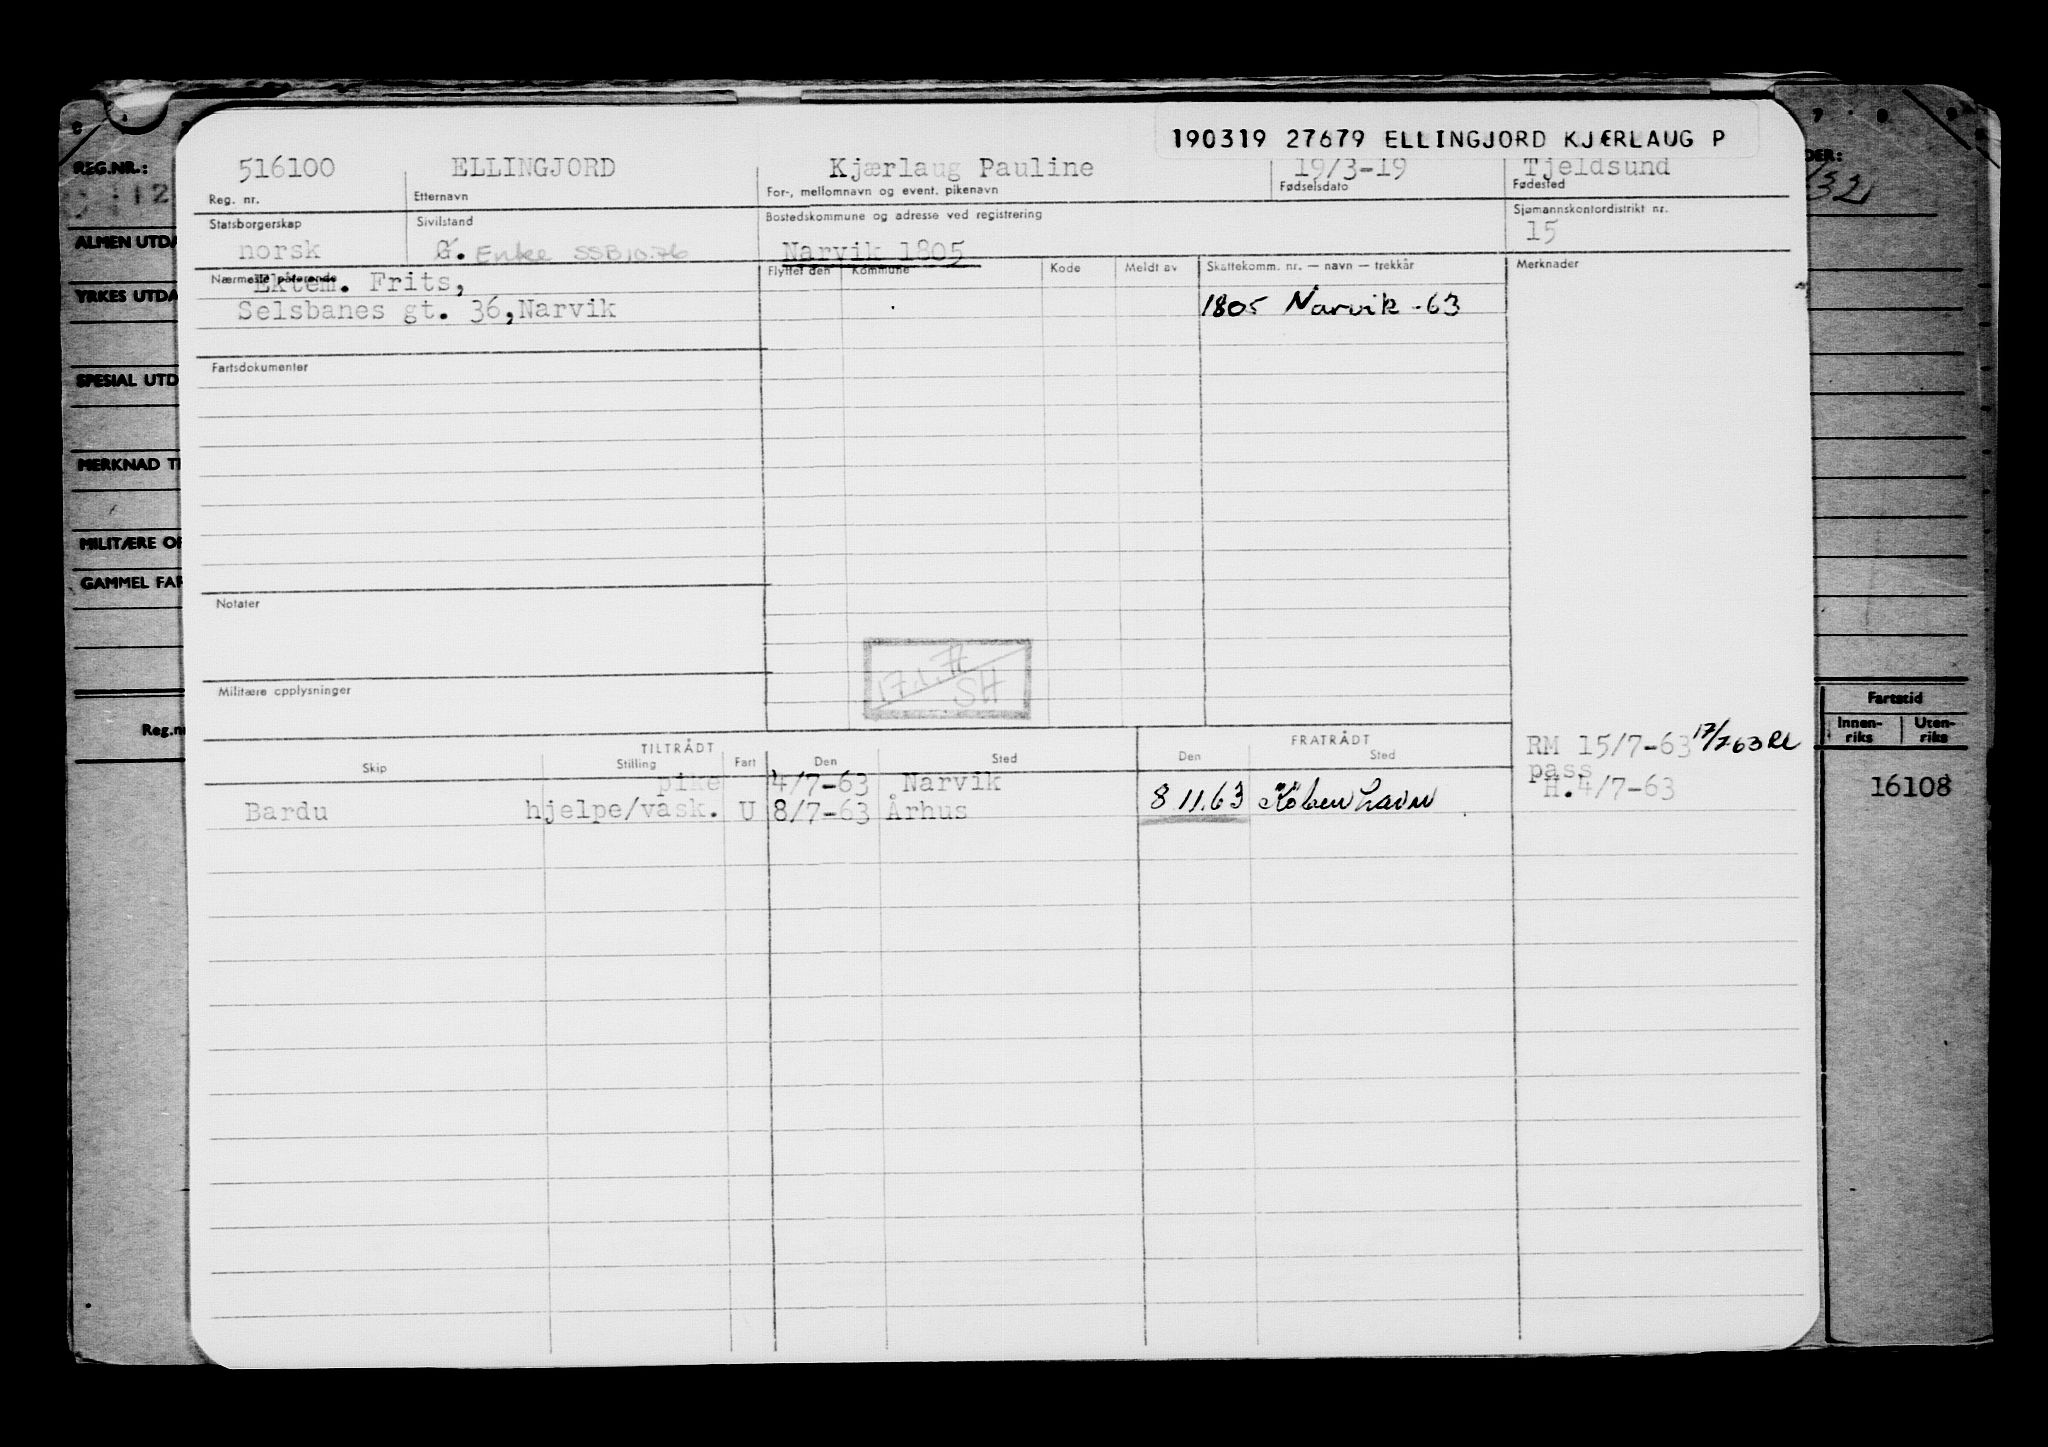 190319 27679 ELLINGJORD KJÆRLAUG P
516100 ELLINGJORD Kjærlaug Pauline 19/3-19 Tjeldsund
Reg. nr. Etternavn For-, mellomnavn og event. pikenavn Fødselsdato Fødested
Statsborgerskap Sivilstand Bostedskommune og adresse ved registrering Sjømannskontordistrikt nr.
norsk G. Enke SSB 10.76 Narvik 1805 15
Nærmeste pårørende Flyttet den Kommune Kode Meldt av Skattekomm. nr. — navn — trekkår Merknader
Ektem. Frits,
Selsbanes gt. 36, Narvik 1805 Narvik -63
Fartsdokumenter
Notater
Militære opplysninger
17.1.77
SH
TILTRÅDT FRATRÅDT
Skip Stilling Fart Den Sted Den Sted
RM 15/7-63 17/7 63 RL
pass
pike 4/7-63 Narvik H. 4/7-63
Bardu hjelpe/vask. U 8/7-63 Århus 8 11.63 København
REG.NR.:
ALMEN UTDA
YRKES UTDA
SPESIAL UTD
MERKNAD T
MILITÆRE OP
GAMMEL FAR
Reg.n
DER:
Fartstid
Innen-
riks
Uten-
riks
16108